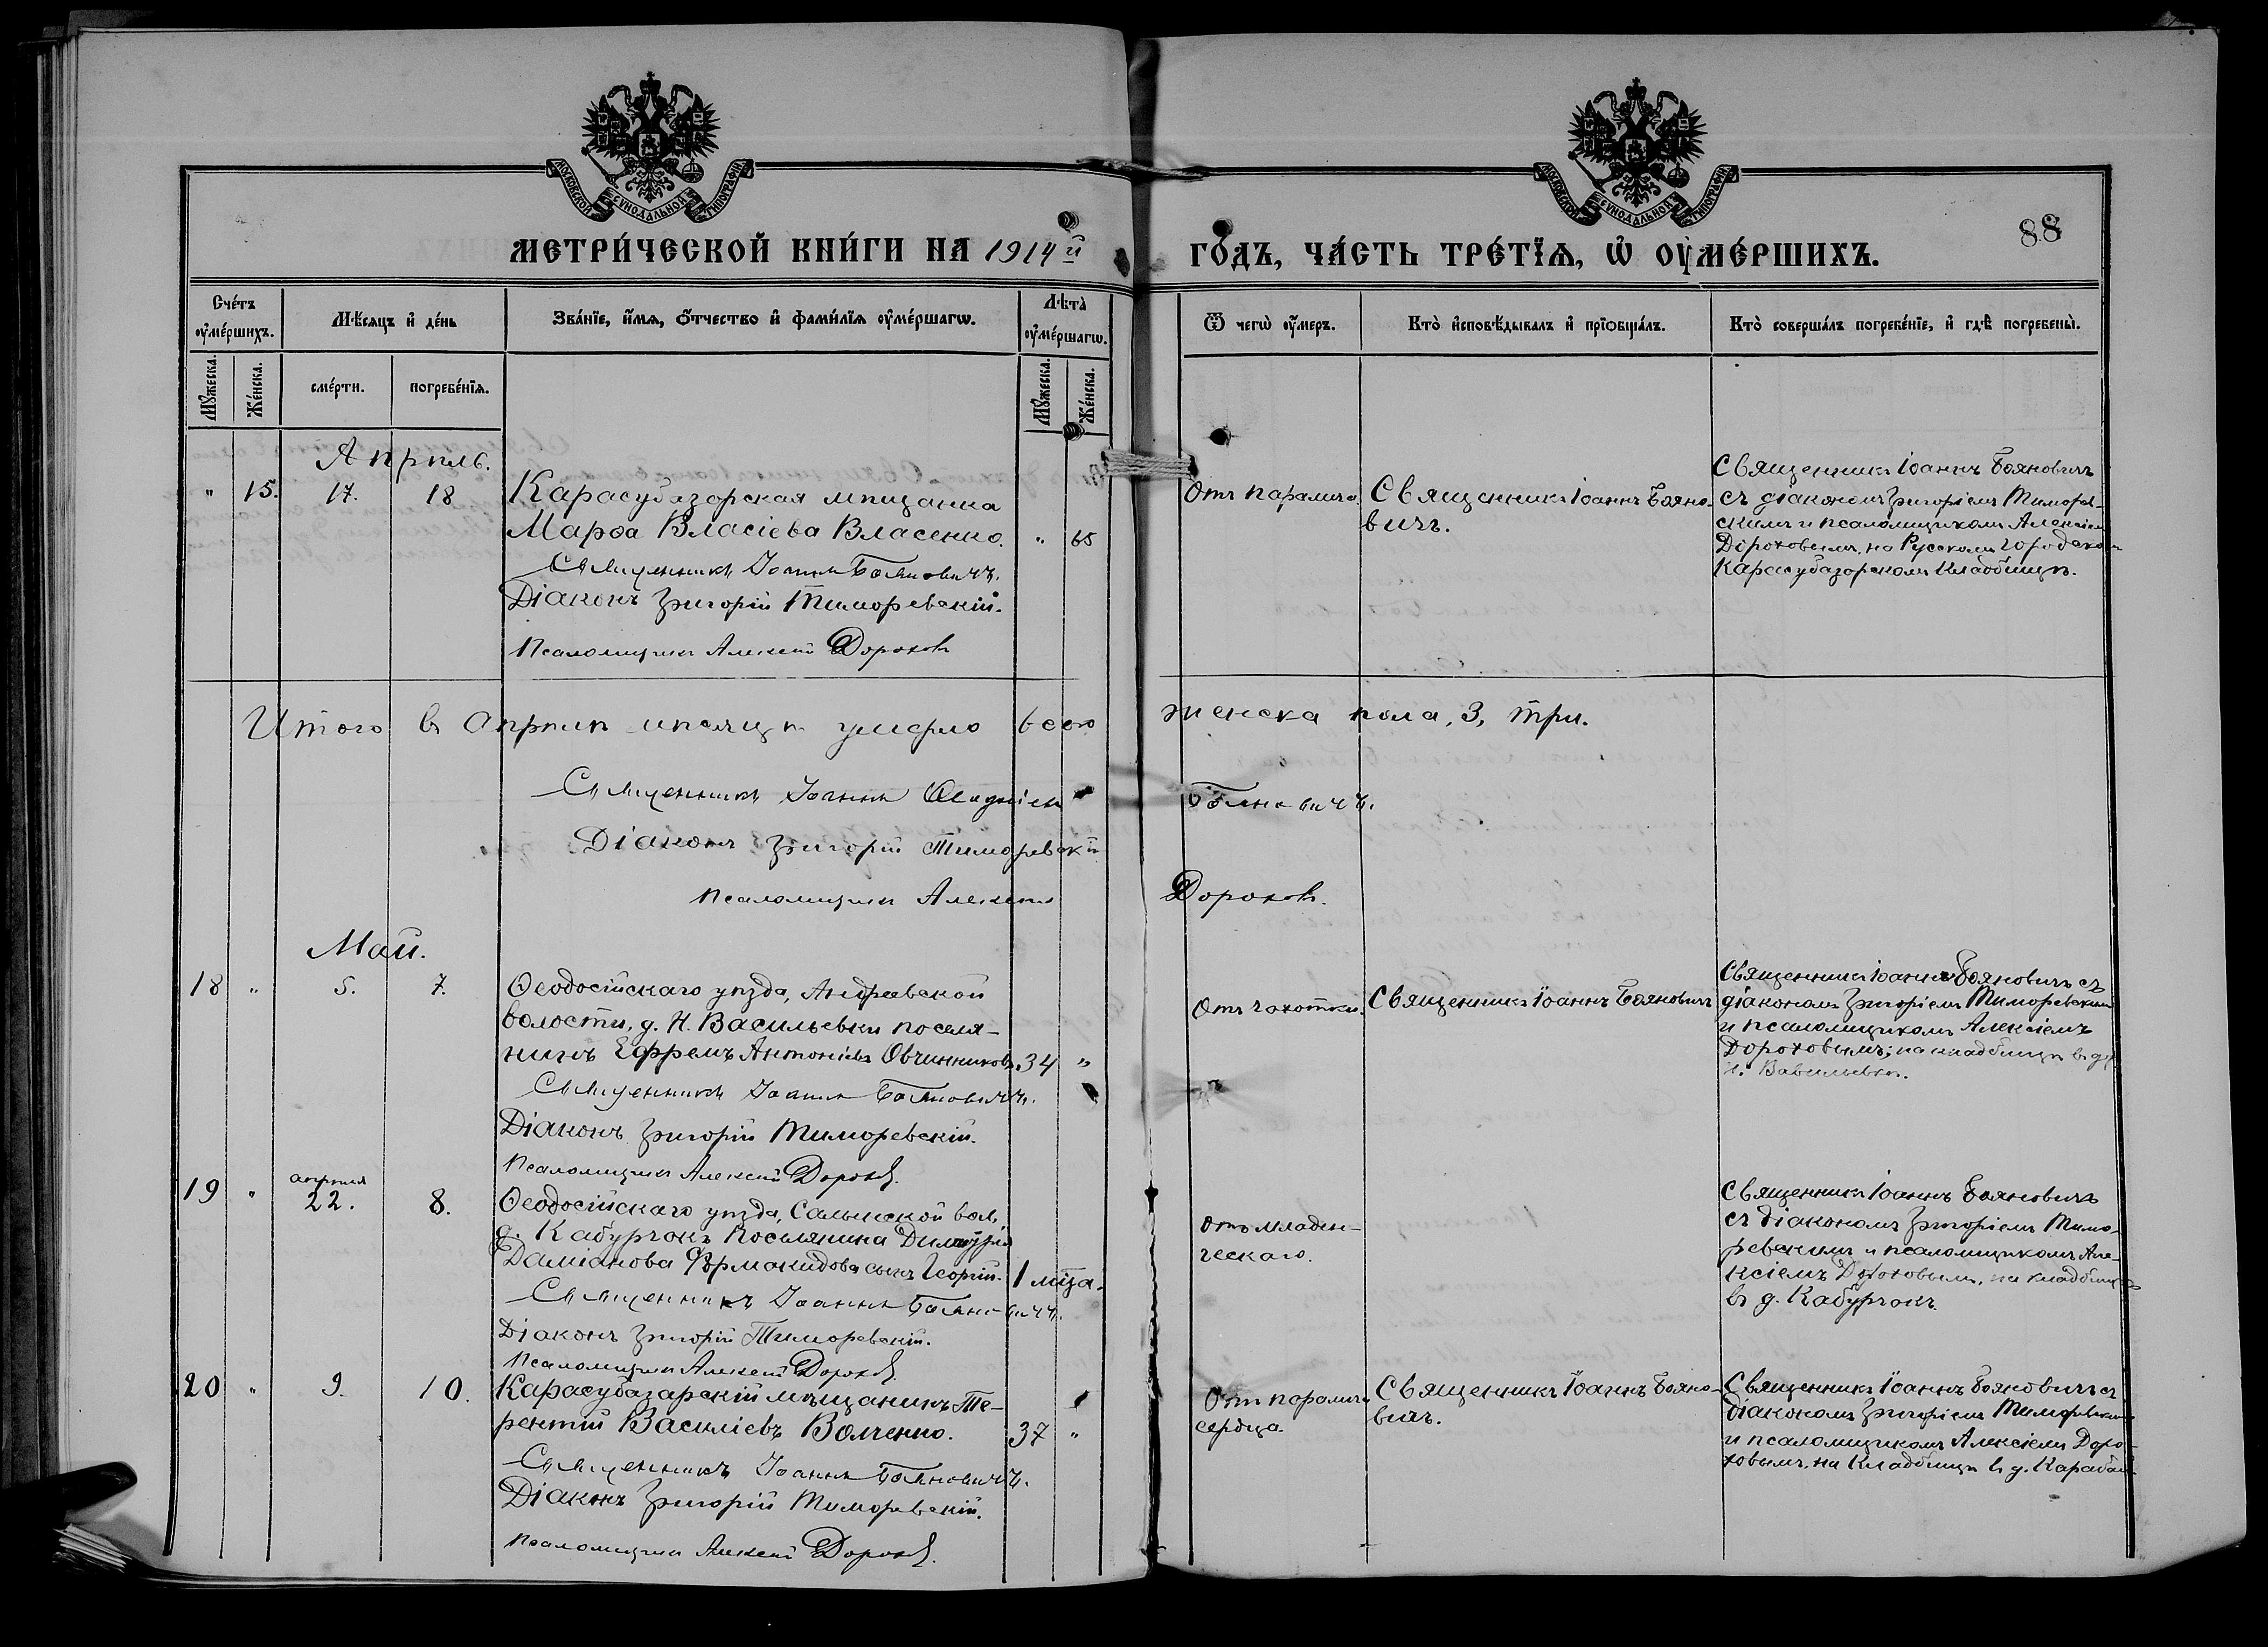 МОСКОВСКОЙ СУНОДАЛЬНОЙ ТИПОГРАФІИ
МОСКОВСКОЙ СУНОДАЛЬНОЙ ТИПОГРАФІИ
88
МЕТРИ́ЧЕСКОЙ КНИ́ГИ НА 1914 й
ГО́ДЪ, ЧА́СТЬ ТРЕ́ТІѦ, Ѡ҆ ОУ҆МЕ́РШИХЪ.
Сче́тъ оу҆ме́ршихъ.
Мѣ́сѧцъ и҆ де́нь
Зва́нїе, и҆́мѧ, ѻ҆́тчество и҆ фами́лїѧ оу҆ме́ршагѡ.
Лѣ́та оу҆ме́ршагѡ.
Ѿ чегѡ̀ оу҆́меръ.
Кто̀ и҆сповѣ́дывалъ и҆ прїѡбща́лъ.
Кто̀ соверша́лъ погребе́нїе, и҆ гдѣ̀ погребены̀.
Мꙋ́жеска.
Же́нска.
сме́рти.
погребе́нїѧ.
Мꙋ́жеска.
Же́нска.
Апрѣль.
" 15. 17. 18
Карасубазарская мѣщанка
Марѳа Власіева Власенко. " 65
Священникъ Іоаннъ Бояновичъ.
Діаконъ Григорій Тиморевскій.
Псаломщикъ Алексій Дороховъ
Отъ паралича
Священникъ Іоаннъ Бояно-
вичъ.
Священникъ Іоаннъ Бояновичъ
съ діакономъ Григоріемъ Тиморев-
скимъ и псаломщикомъ Алексіемъ
Дороховымъ, на Русскомъ городском
Карасубазарскомъ кладбищѣ.
Итого въ апрѣлѣ мѣсяцѣ умерло всего женска пола, 3, три.
Священникъ Іоаннъ Бояновичъ.
Діаконъ Григорій Тиморевскій
Псаломщикъ Алексій Дороховъ.
Май.
18 " 5. 7.
Ѳеодосійскаго уѣзда, Андреевской
волости, д. Н. Васильевки поселя-
нинъ Ефремъ Антоніевъ Овчинниковъ. 34 "
Священникъ Іоаннъ Бояновичъ.
Діаконъ Григорій Тиморевскій.
Псаломщикъ Алексій Дороховъ.
Отъ чахотки.
Священникъ Іоаннъ Бояновичъ
Священникъ Іоаннъ Бояновичъ съ
діакономъ Григоріемъ Тиморевскимъ
и псаломщикомъ Алексіемъ
Дороховымъ; на кладбищѣ въ д.
Н. Васильевкѣ.
19 " апрѣля 22. 8.
Ѳеодосійскаго уѣзда, Салынской вол.
д. Кабурчокъ поселянина Димитрія
Даміанова Фурмакидова сынъ Георгій. 1 мѣса.
Священникъ Іоаннъ Бояновичъ.
Діаконъ Григорій Тиморевскій.
Псаломщикъ Алексій Дороховъ.
отъ младен-
ческаго.
Священникъ Іоаннъ Бояновичъ
съ діакономъ Григоріемъ Тимо-
ревскимъ и псаломщикомъ Але-
ксіемъ Дороховымъ, на кладбищѣ
въ д. Кабурчокъ.
20 " 9. 10.
Карасубазарскій мѣщанинъ Те-
рентій Василіевъ Волченко. 37 "
Священникъ Іоаннъ Бояновичъ.
Діаконъ Григорій Тиморевскій.
Псаломщикъ Алексій Дороховъ.
Отъ паралича
сердца.
Священникъ Іоаннъ Бояно-
вичъ.
Священникъ Іоаннъ Бояновичъ съ
діакономъ Григоріемъ Тиморевским
и псаломщикомъ Алексіемъ Доро-
ховымъ, на кладбищѣ въ д.